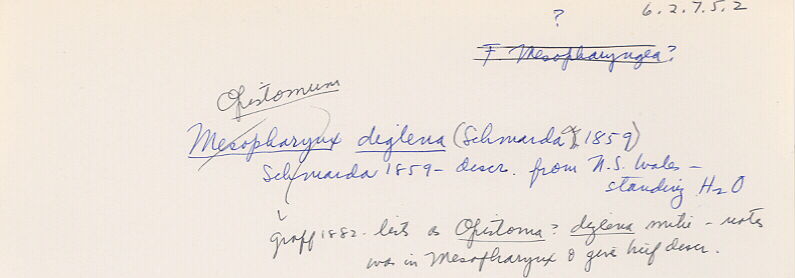 ?
6.2.7.5.2
F. Mesopharyngea?
Opistomum
Mesopharynx diglena (Schmarda, 1859)
Schmarda 1859 - descr. from N.S. Wales -
standing H2O
Graff 1882 - lists as Opistoma? diglena mihi - notes
was in Mesopharynx & give brief descr.